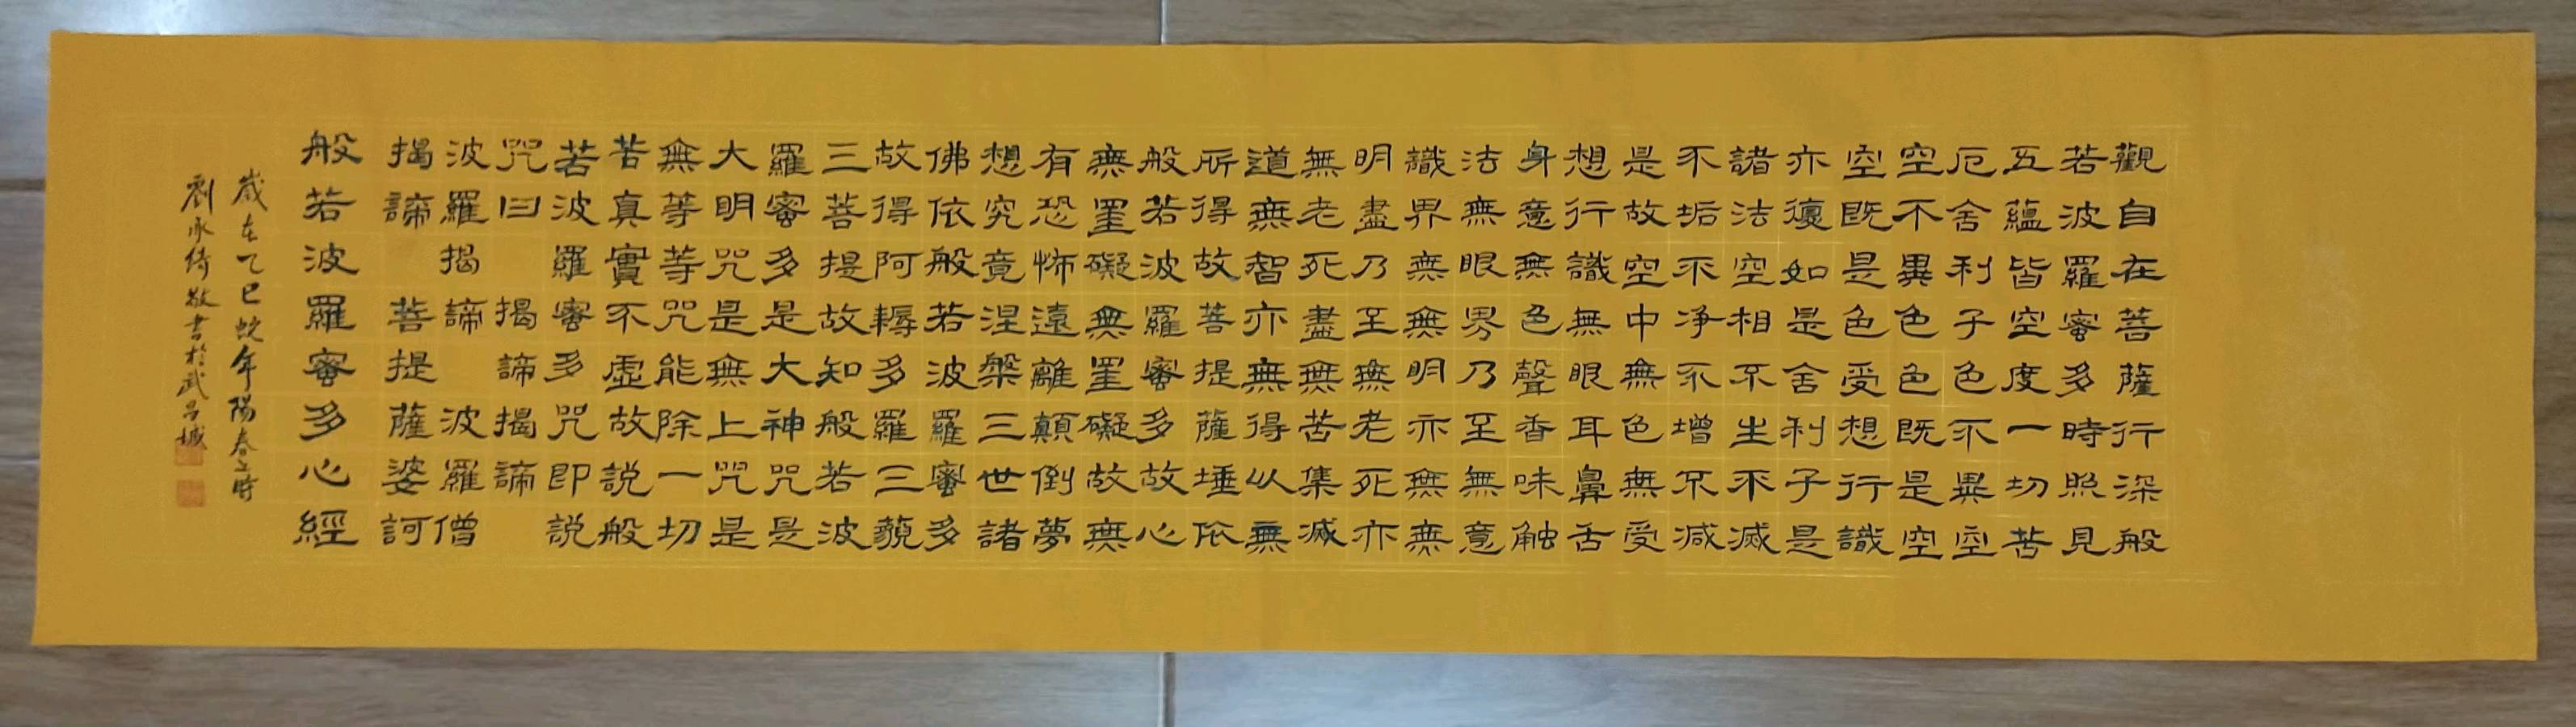 觀自在菩薩行深般
若波羅蜜多時照見
五蘊皆空度一切苦
厄舍利子色不異空
空不異色色既是空
空既是色受想行識
亦復如是舍利子是
諸法空相不生不滅
不垢不净不增不減
是故空中無色無受
想行識無眼耳鼻舌
身意無色聲香味触
法無眼界乃至無意
識界無無明亦無無
明盡乃至無老死亦
無老死盡無苦集滅
道無智亦無得以無
所得故菩提薩埵依
般若波羅蜜多故心
無罣礙無罣礙故無
有恐怖遠離顛倒夢
想究竟涅槃三世諸
佛依般若波羅蜜多
故得阿耨多羅三藐
三菩提故知般若波
羅蜜多是大神咒是
大明咒是無上咒是
無等等咒能除一切
苦真實不虛故説般
若波羅蜜多咒即説
咒曰 揭諦揭諦
波羅揭諦 波羅僧
揭諦 菩提薩婆訶
般若波羅蜜多心經
歲在乙巳蛇年陽春之時
劉 綺敬書於武昌城